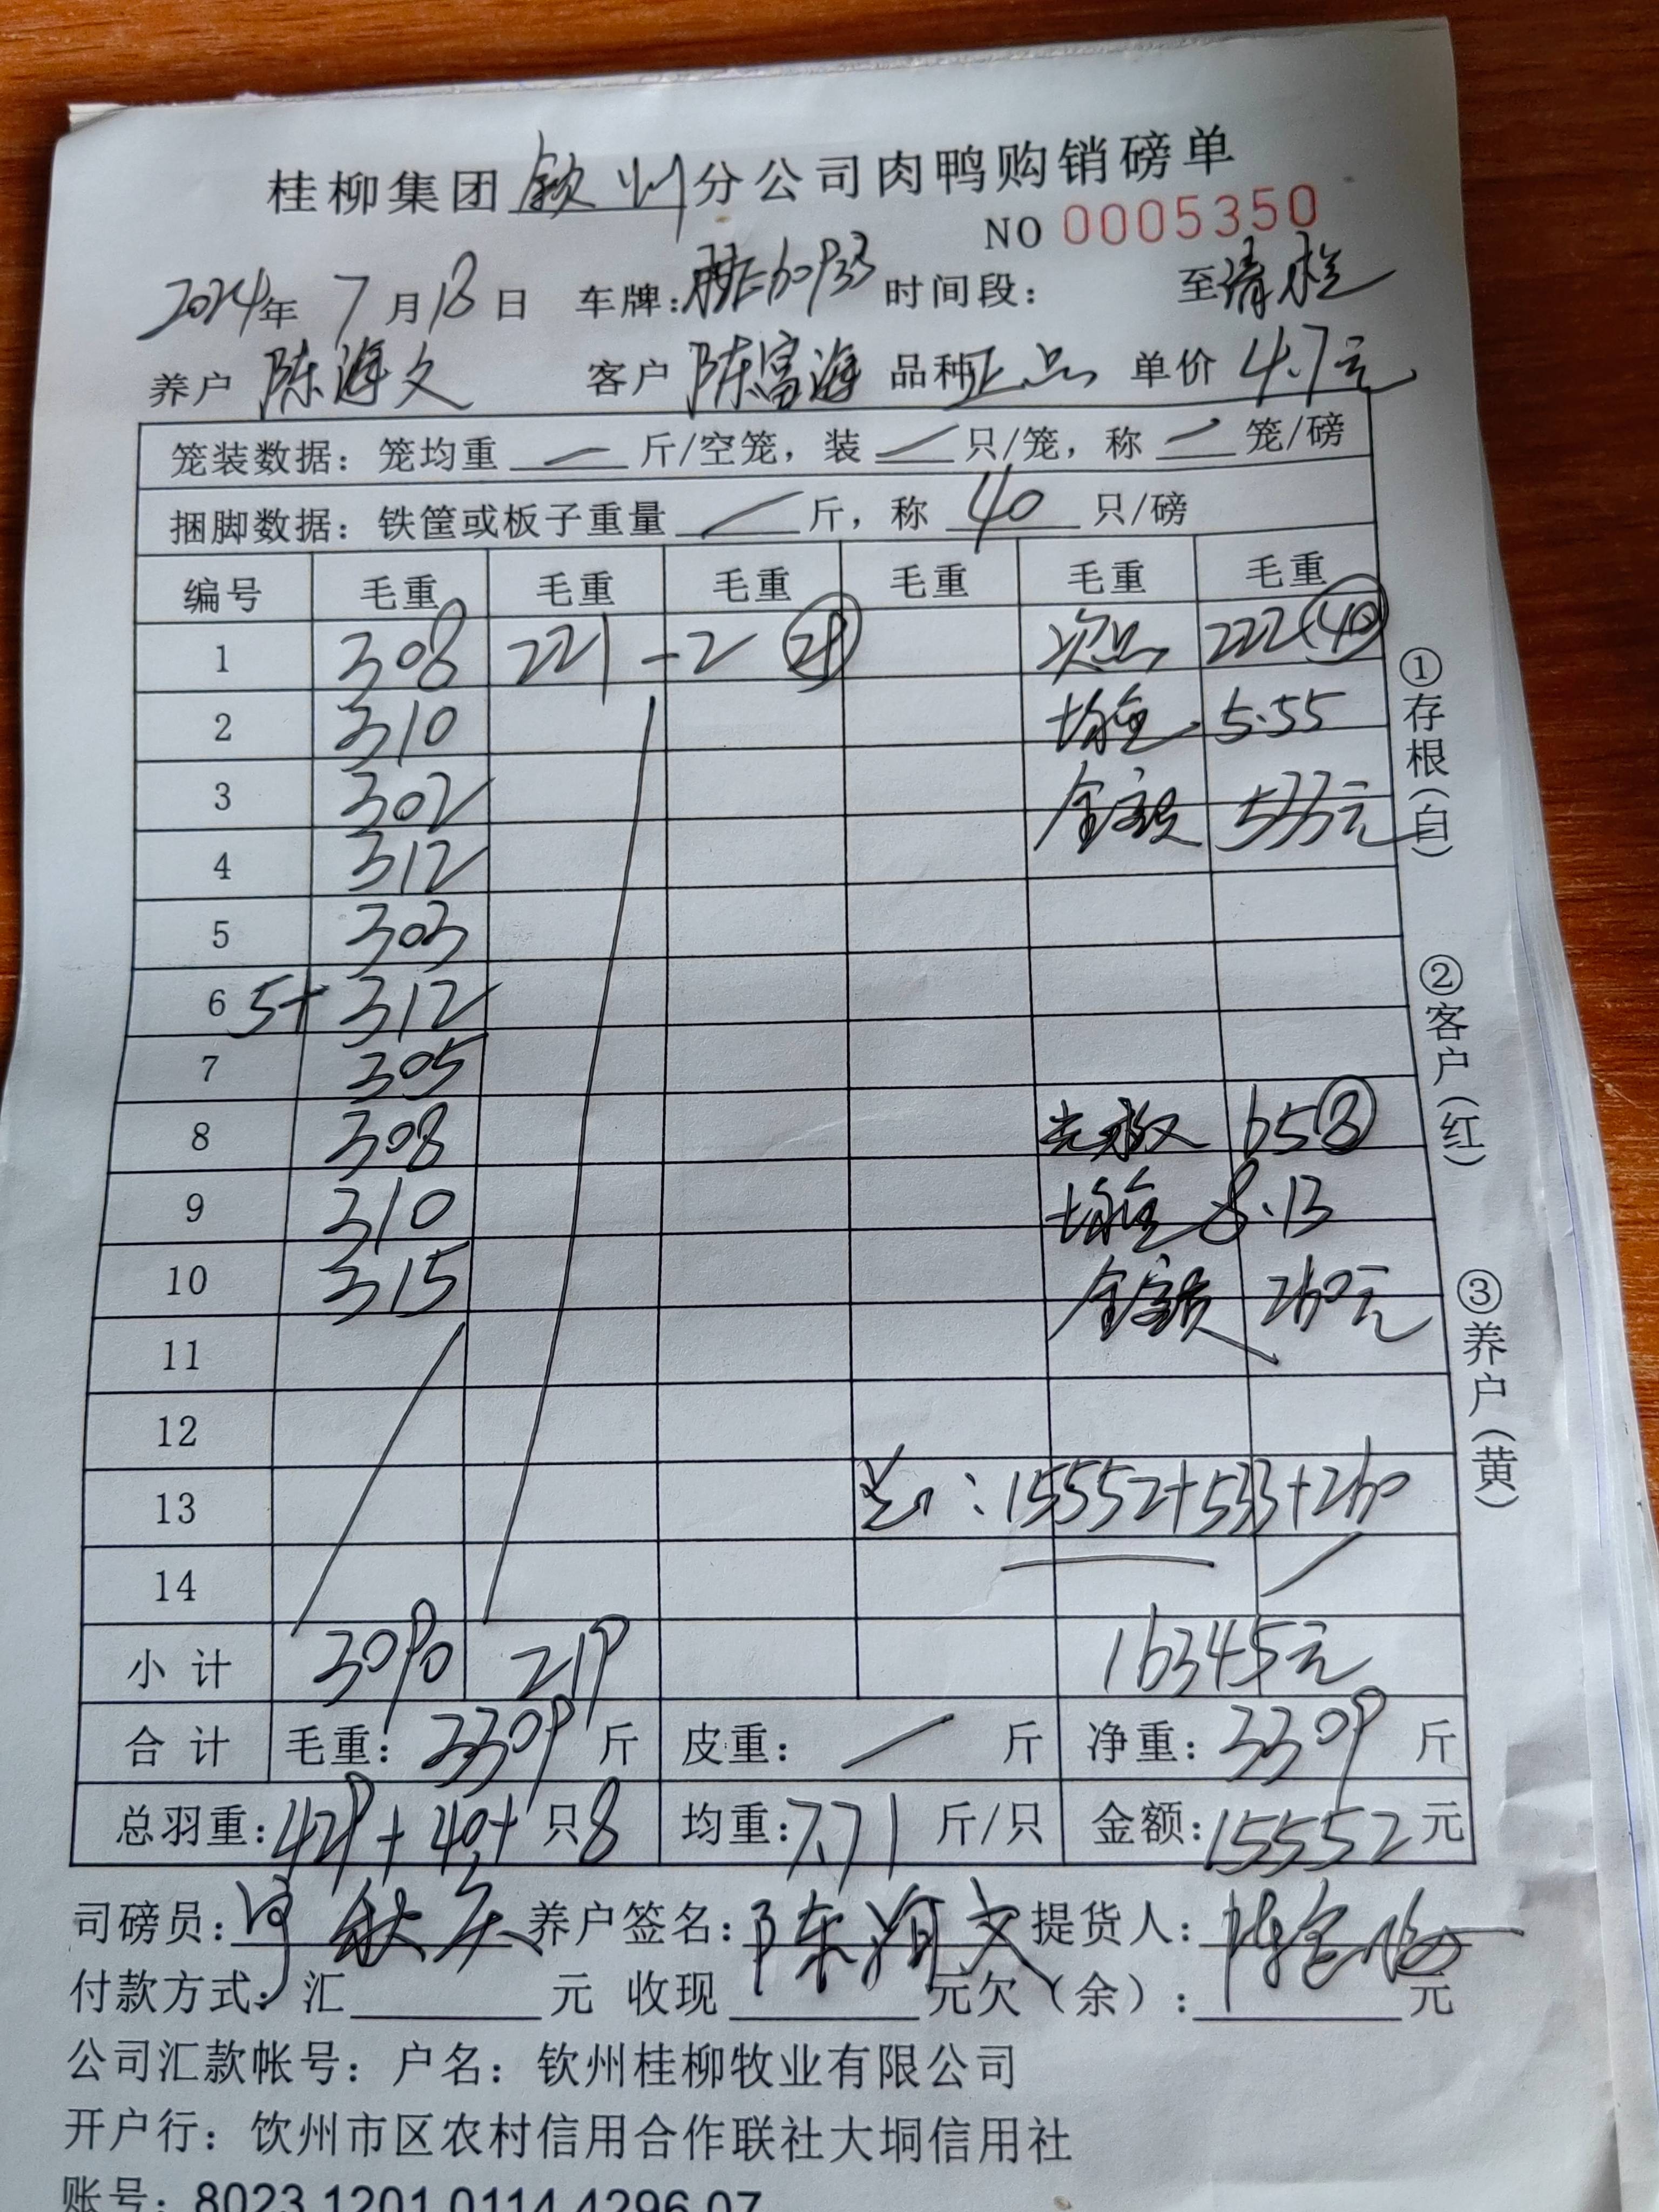 桂柳集团 钦州 分公司肉鸭购销磅单
NO 0005350
2024年 7月18日 车牌: 时间段: 至
养户 陈海文 客户 陈富海 品种 正品 单价 4.7元
笼装数据：笼均重 — 斤/空笼，装 — 只/笼，称 — 笼/磅
捆脚数据：铁筐或板子重量 — 斤，称 40 只/磅
编号 毛重 毛重 毛重 毛重 毛重 毛重
1 308 221 -2 次品 222 (40)
2 310 均重 5.55
3 302 金额 533元
4 312
5 303
6 5+ 312
7 305
8 308 65 (8)
9 310 均重 8.13
10 315 金额 260元
11
12
13 15552+533+260
14
小计 3090 219 16345元
合计 毛重：3309 斤 皮重： — 斤 净重：3309 斤
总羽重：429+40+ 只8 均重：7.71 斤/只 金额：15552元
司磅员： 养户签名：陈海文 提货人：
付款方式：汇 元 收现 元欠（余）： 元
公司汇款帐号：户名：钦州桂柳牧业有限公司
开户行：钦州市区农村信用合作联社大垌信用社
账号：8023 1201 0114 4296 07
①存根（白）
②客户（红）
③养户（黄）